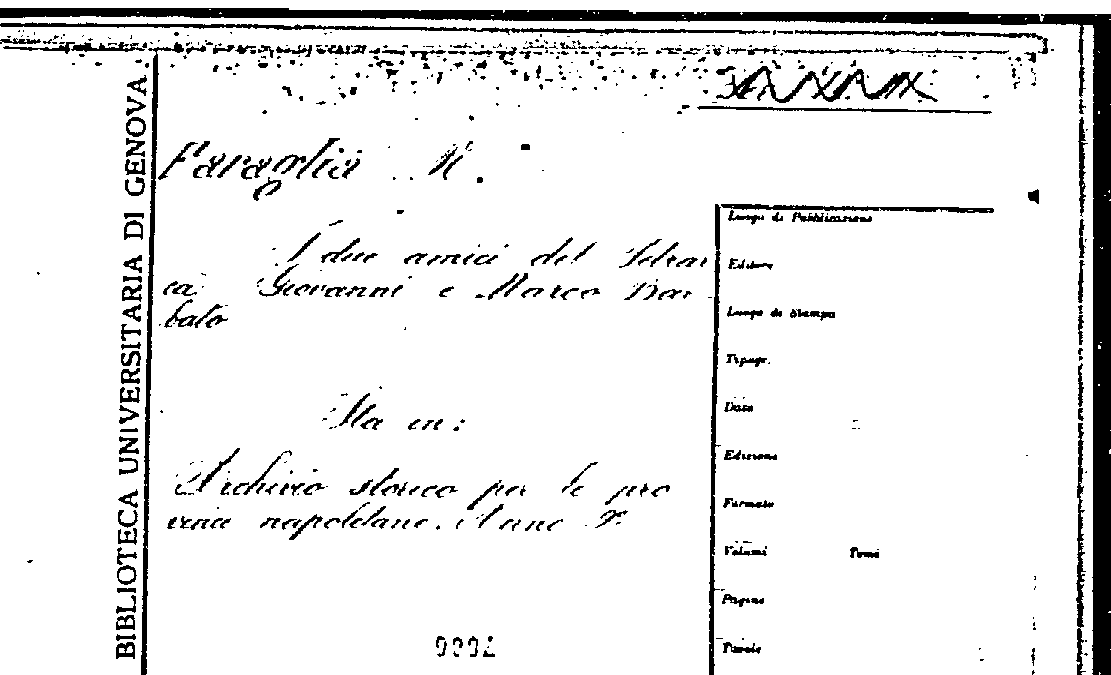 BIBLIOTECA UNIVERSITARIA DI GENOVA
Faraglia N.
I due amici del Petrar
ca Giovanni e Marco Bar
bato
Sta in:
Archivio storico per le pro
vince napoletane. Anno
Luogo di Pubblicazione
Editore
Luogo di Stampa
Tipogr.
Data
Edizione
Formato
Volumi Tomi
Pagine
Tavole